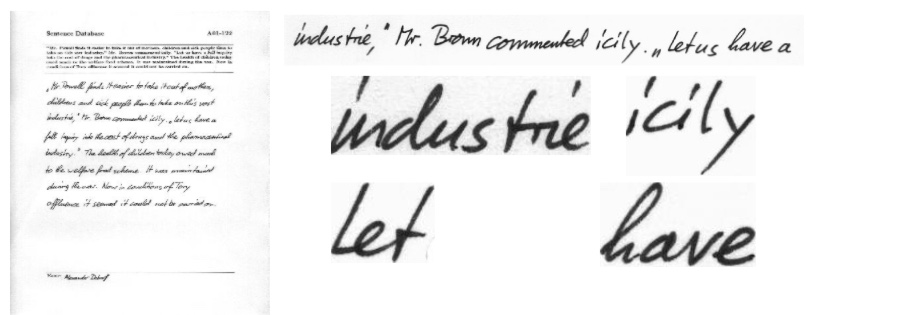 Sentence Database
A01-122
"Mr. Powell finds it easier to take it out of mothers, children and sick people than to
take on this vast industry," Mr. Brown commented icily. "Let us have a full inquiry
into the cost of drugs and the pharmaceutical industry." The health of children today
owed much to the welfare food scheme. It was maintained during the war. Now in
conditions of Tory affluence it seemed it could not be carried on.
„Mr. Powell finds it easier to take it out of mothers,
childrens and sick people than to take on this vast
industrie," Mr. Brown commented icily. „Let us have a
full inquiry into the cost of drugs and the pharmaceutical
industry." The health of children today owed much
to the welfare food scheme. It was maintained
during the war. Now in conditions of Tory
affluence it seemed it could not be carried on.
Name:
industrie," Mr. Brown commented icily. „Let us have a
industrie
icily
Let
have